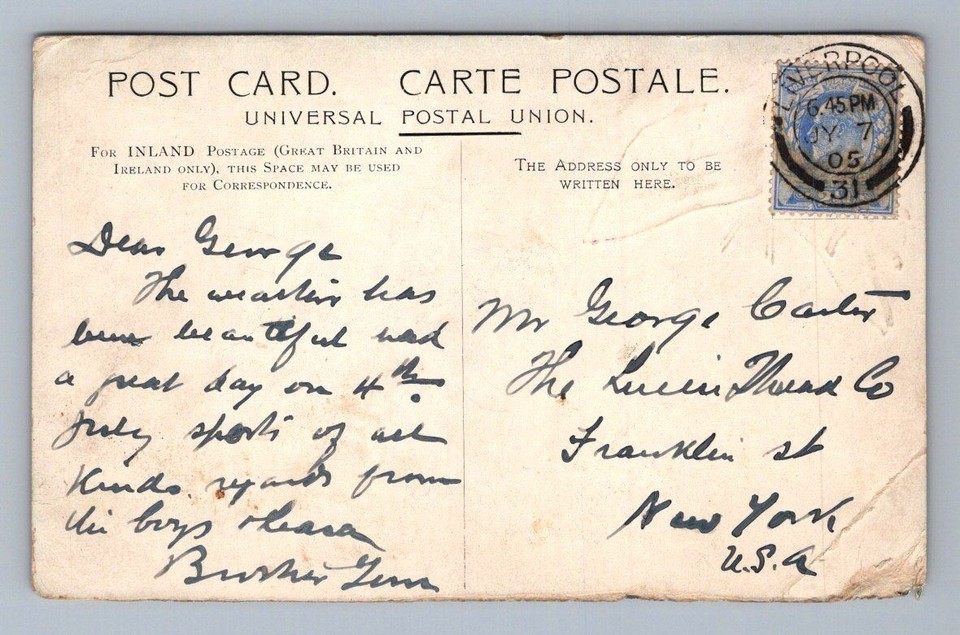 POST CARD. CARTE POSTALE.
UNIVERSAL POSTAL UNION.
FOR INLAND POSTAGE (GREAT BRITAIN AND
IRELAND ONLY), THIS SPACE MAY BE USED
FOR CORRESPONDENCE.
THE ADDRESS ONLY TO BE
WRITTEN HERE.
LIVERPOOL
6.45 PM
JY 7
05
31
Dear George
The weather has
been beautiful had
a great day on 4th
July sports of all
Kinds. regards from
the boys
Brother
Mr George Carter
The Thread Co
Franklin st
New York
U.S.A